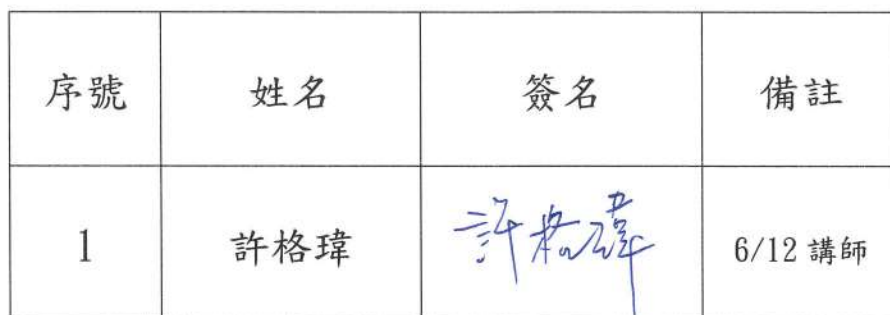 序號 姓名 簽名 備註
1 許格瑋 許格瑋 6/12 講師